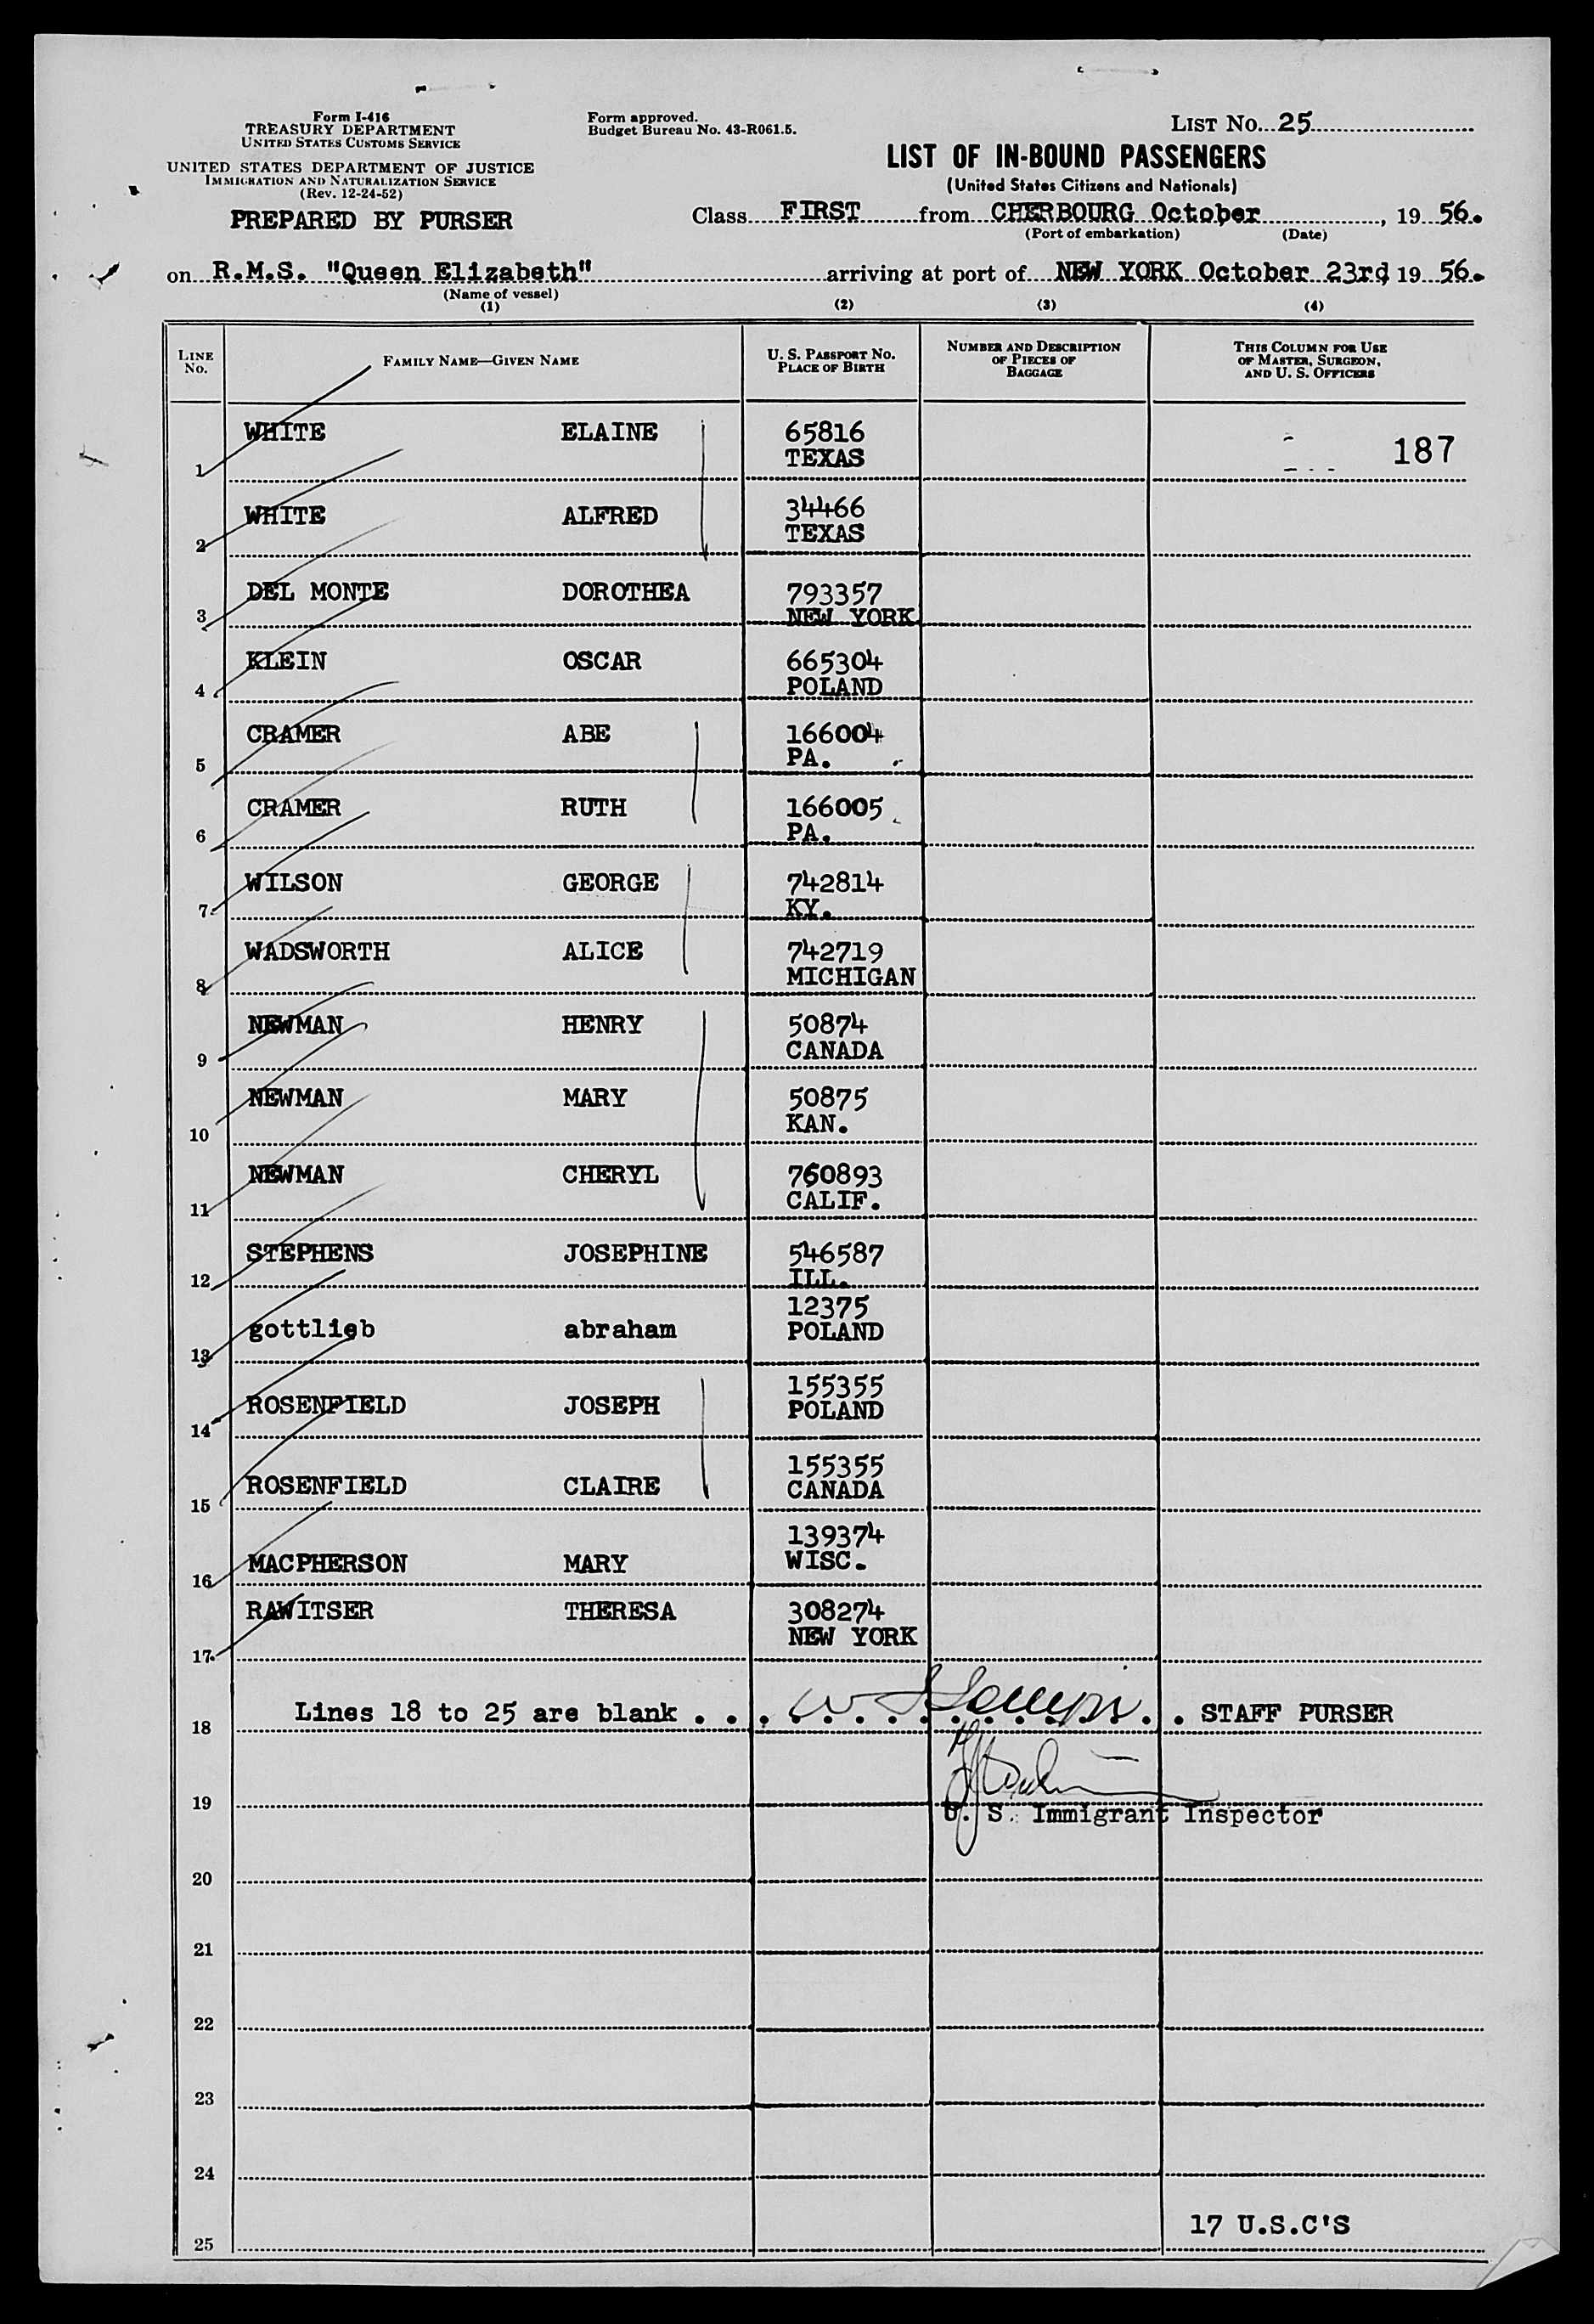 Form I-416
TREASURY DEPARTMENT
UNITED STATES CUSTOMS SERVICE
UNITED STATES DEPARTMENT OF JUSTICE
IMMIGRATION AND NATURALIZATION SERVICE
(Rev. 12-24-52)
PREPARED BY PURSER
Form approved.
Budget Bureau No. 43-R061.5.
LIST No. 25
LIST OF IN-BOUND PASSENGERS
(United States Citizens and Nationals)
Class FIRST from CHERBOURG October , 19 56.
(Port of embarkation) (Date)
on R.M.S. "Queen Elizabeth" arriving at port of NEW YORK October 23rd, 19 56.
(Name of vessel)
(1) (2) (3) (4)
LINE No. FAMILY NAME—GIVEN NAME U. S. PASSPORT No. PLACE OF BIRTH NUMBER AND DESCRIPTION OF PIECES OF BAGGAGE THIS COLUMN FOR USE OF MASTER, SURGEON, AND U. S. OFFICERS
1 WHITE ELAINE 65816 TEXAS 187
2 WHITE ALFRED 34466 TEXAS
3 DEL MONTE DOROTHEA 793357 NEW YORK
4 KLEIN OSCAR 665304 POLAND
5 CRAMER ABE 166004 PA.
6 CRAMER RUTH 166005 PA.
7 WILSON GEORGE 742814 KY.
8 WADSWORTH ALICE 742719 MICHIGAN
9 NEWMAN HENRY 50874 CANADA
10 NEWMAN MARY 50875 KAN.
11 NEWMAN CHERYL 760893 CALIF.
12 STEPHENS JOSEPHINE 546587 ILL.
13 gottlieb abraham 12375 POLAND
14 ROSENFIELD JOSEPH 155355 POLAND
15 ROSENFIELD CLAIRE 155355 CANADA
16 MACPHERSON MARY 139374 WISC.
17 RAWITSER THERESA 308274 NEW YORK
18 Lines 18 to 25 are blank . . . . . . . . . . . . . . . . STAFF PURSER
19
U. S. Immigrant Inspector
20
21
22
23
24
17 U.S.C'S
25